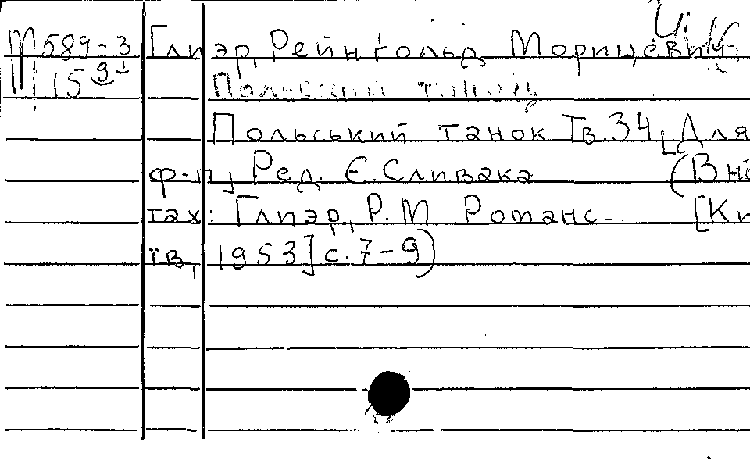 М589-3 Глиэр, Рейнгольд Морицевич.
15
Польський танок Тв.34. [Для
ф-п] Ред. Є.Сливака (В но
тах: Глиэр, Р.М Романс. [Ки
їв, 1953] с.7-9)